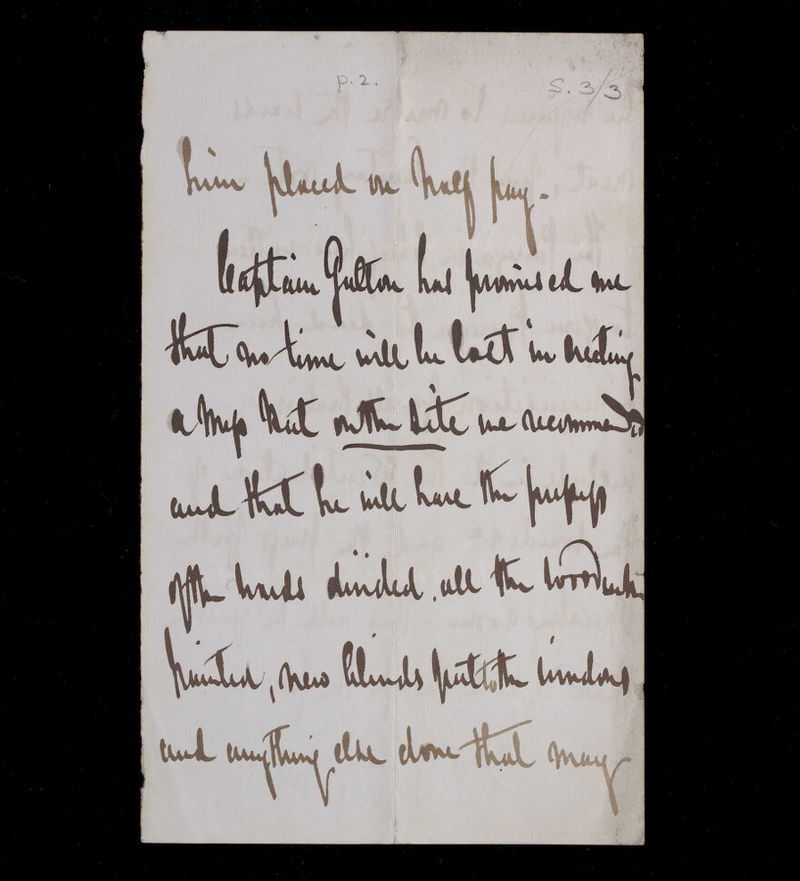 p.2.
S. 3/3
him placed on half pay.
Captain Galton has promised me
that no time will be lost in erecting
a Mess Hut on the site we recommended
and that he will have the passage
of the wards divided. all the woodwork
painted, new blinds put to the windows
and anything else done that may